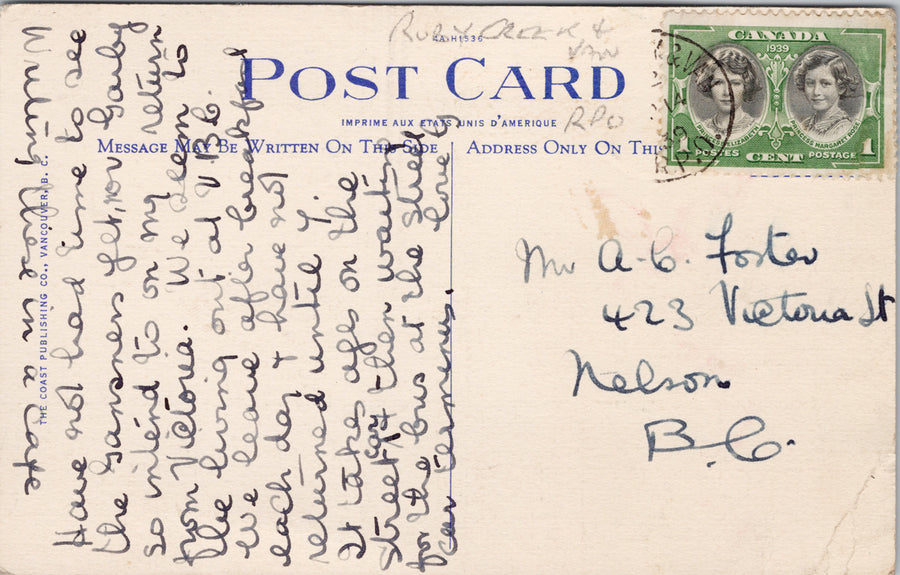 Ruby Creek &
Van
RPO
4A-H1536
POST CARD
IMPRIME AUX ETATS UNIS D'AMERIQUE
MESSAGE MAY BE WRITTEN ON THIS SIDE
ADDRESS ONLY ON THIS
THE COAST PUBLISHING CO., VANCOUVER, B. C.
CANADA
1939
PRINCESS ELIZABETH
PRINCESS MARGARET ROSE
1 POSTES CENT POSTAGE 1
& VAN
R.P.O.
Writing these in a Cafe
Have not had time to see
the Gansners yet, nor
so intend to on my return
from Victoria. We seem to
be living out at U.B.C.
We leave after breakfast
each day & have not
returned until 7.
It takes ages on the
street car & then waiting
for the bus at the street
car terminus. Love
Mr A. C. Foster
423 Victoria St
Nelson
B.C.